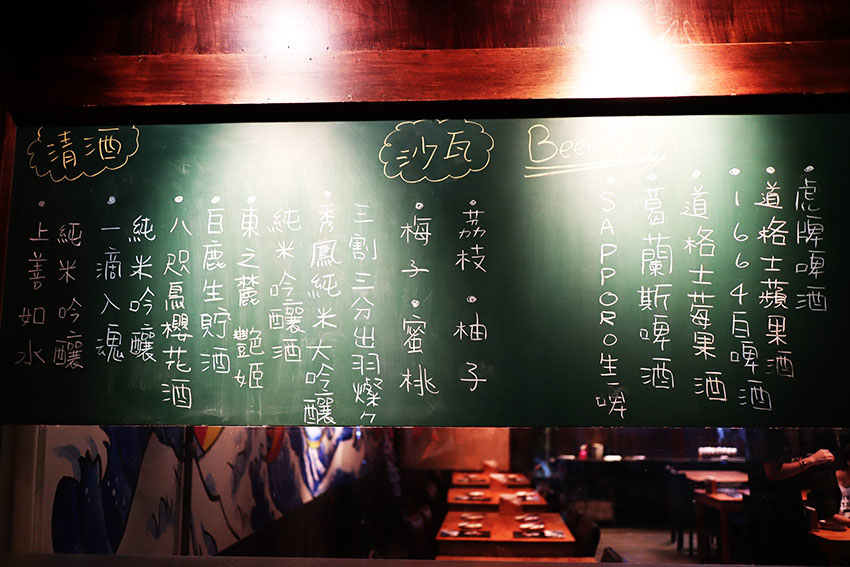 清酒
・上善如水
純米吟釀
・一滴入魂
純米吟釀
・八咫烏櫻花酒
・白鹿生貯酒
・東之麓 艷姬
純米吟釀酒
・秀鳳純米大吟釀
三割三分出羽燦々
沙瓦
・梅子・蜜桃
・荔枝・柚子
Beer
・SAPPORO生啤
・葛蘭斯啤酒
・道格士莓果酒
・1664白啤酒
・道格士蘋果酒
・虎牌啤酒